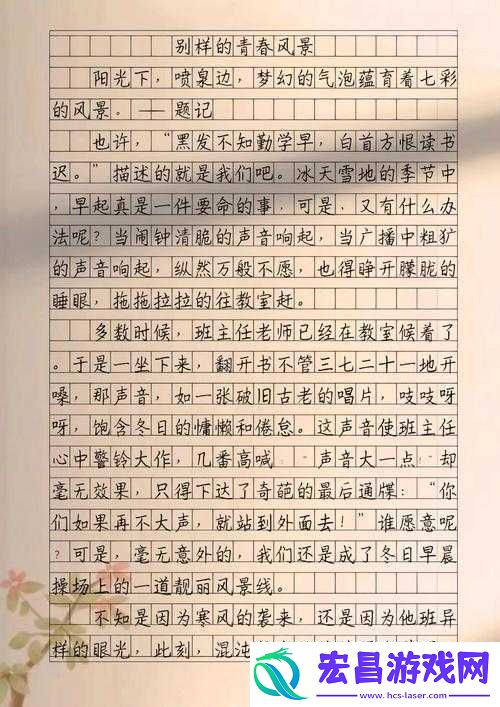 别样的青春风景
阳光下，喷泉边，梦幻的气泡蕴育着七彩
的风景。——题记
也许，“黑发不知勤学早，白首方恨读书
迟。”描述的就是我们吧。冰天雪地的季节中
，早起真是一件要命的事，可是，又有什么办
法呢？当闹钟清脆的声音响起，当广播中粗犷
的声音响起，纵然万般不愿，也得睁开朦胧的
睡眼，拖拖拉拉的往教室赶。
多数时候，班主任老师已经在教室候着了
。于是一坐下来，翻开书不管三七二十一地开
嗓，那声音，如一张破旧古老的唱片，吱吱呀
呀，饱含冬日的慵懒和倦怠。这声音使班主任
心中警铃大作，几番高喊 声音大一点 却
毫无效果，只得下达了奇葩的最后通牒：“你
们如果再不大声，就站到外面去！”谁愿意呢
？可是，毫无意外的，我们还是成了冬日早晨
操场上的一道靓丽风景线。
不知是因为寒风的袭来，还是因为他班异
样的眼光，此刻，混沌
宏昌游戏网
www.hcs-laser.com